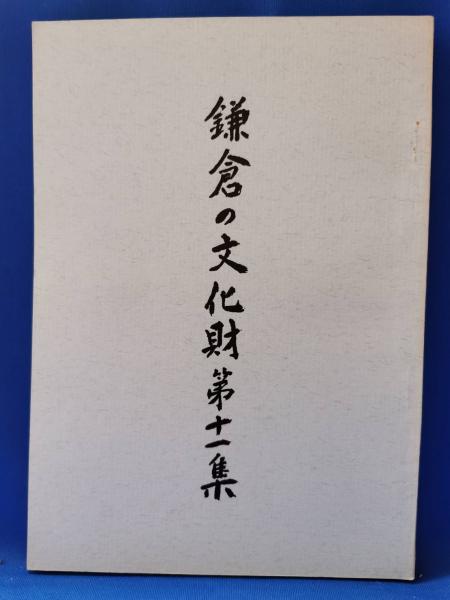 鎌倉の文化財第十一集